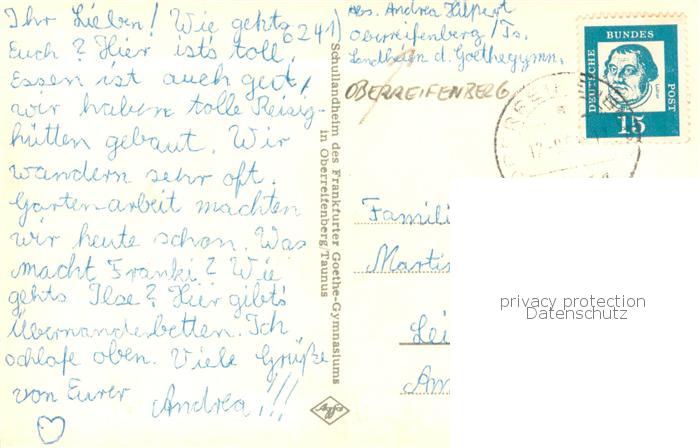 Ihr Lieben! Wie gehts
Euch? Hier ists toll.
Essen ist auch gut,
wir haben tolle Reisig-
hütten gebaut. Wir
wandern sehr oft.
Gartenarbeit machten
wir heute schon. Was
macht Franki? Wie
gehts Ilse? Hier gibts
Übernanderbetten. Ich
schlafe oben. Viele Grüße
von Eurer Andrea!!!
6241)
Abs. Andrea Hilpert
Oberreifenberg/Ts.
Landheim d. Goethegymn.
OBERREIFENBERG
Schullandheim des Frankfurter Goethe-Gymnasiums
in Oberreifenberg/Taunus
DEUTSCHE
BUNDES
POST
15
Famili
Martis
Lei
Am
privacy protection
Datenschutz